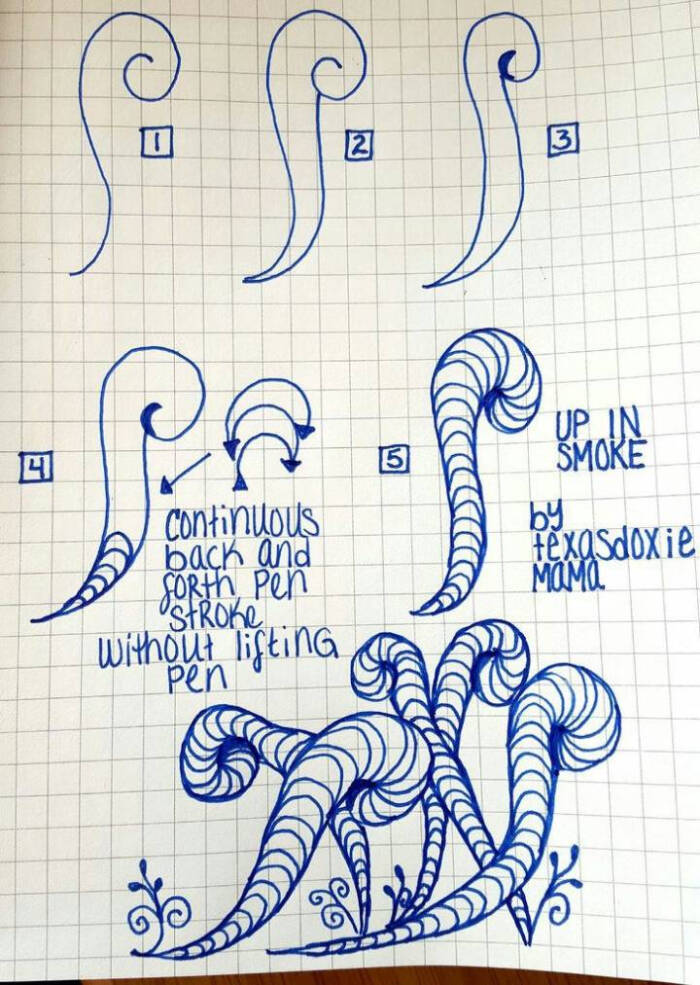 1
2
3
4
CONTINUOUS
back and
FORTH PEN
STROKE
WITHOUT lifTING
PEN
5
UP IN
SMOKE
by
texasdoxie
MAMA